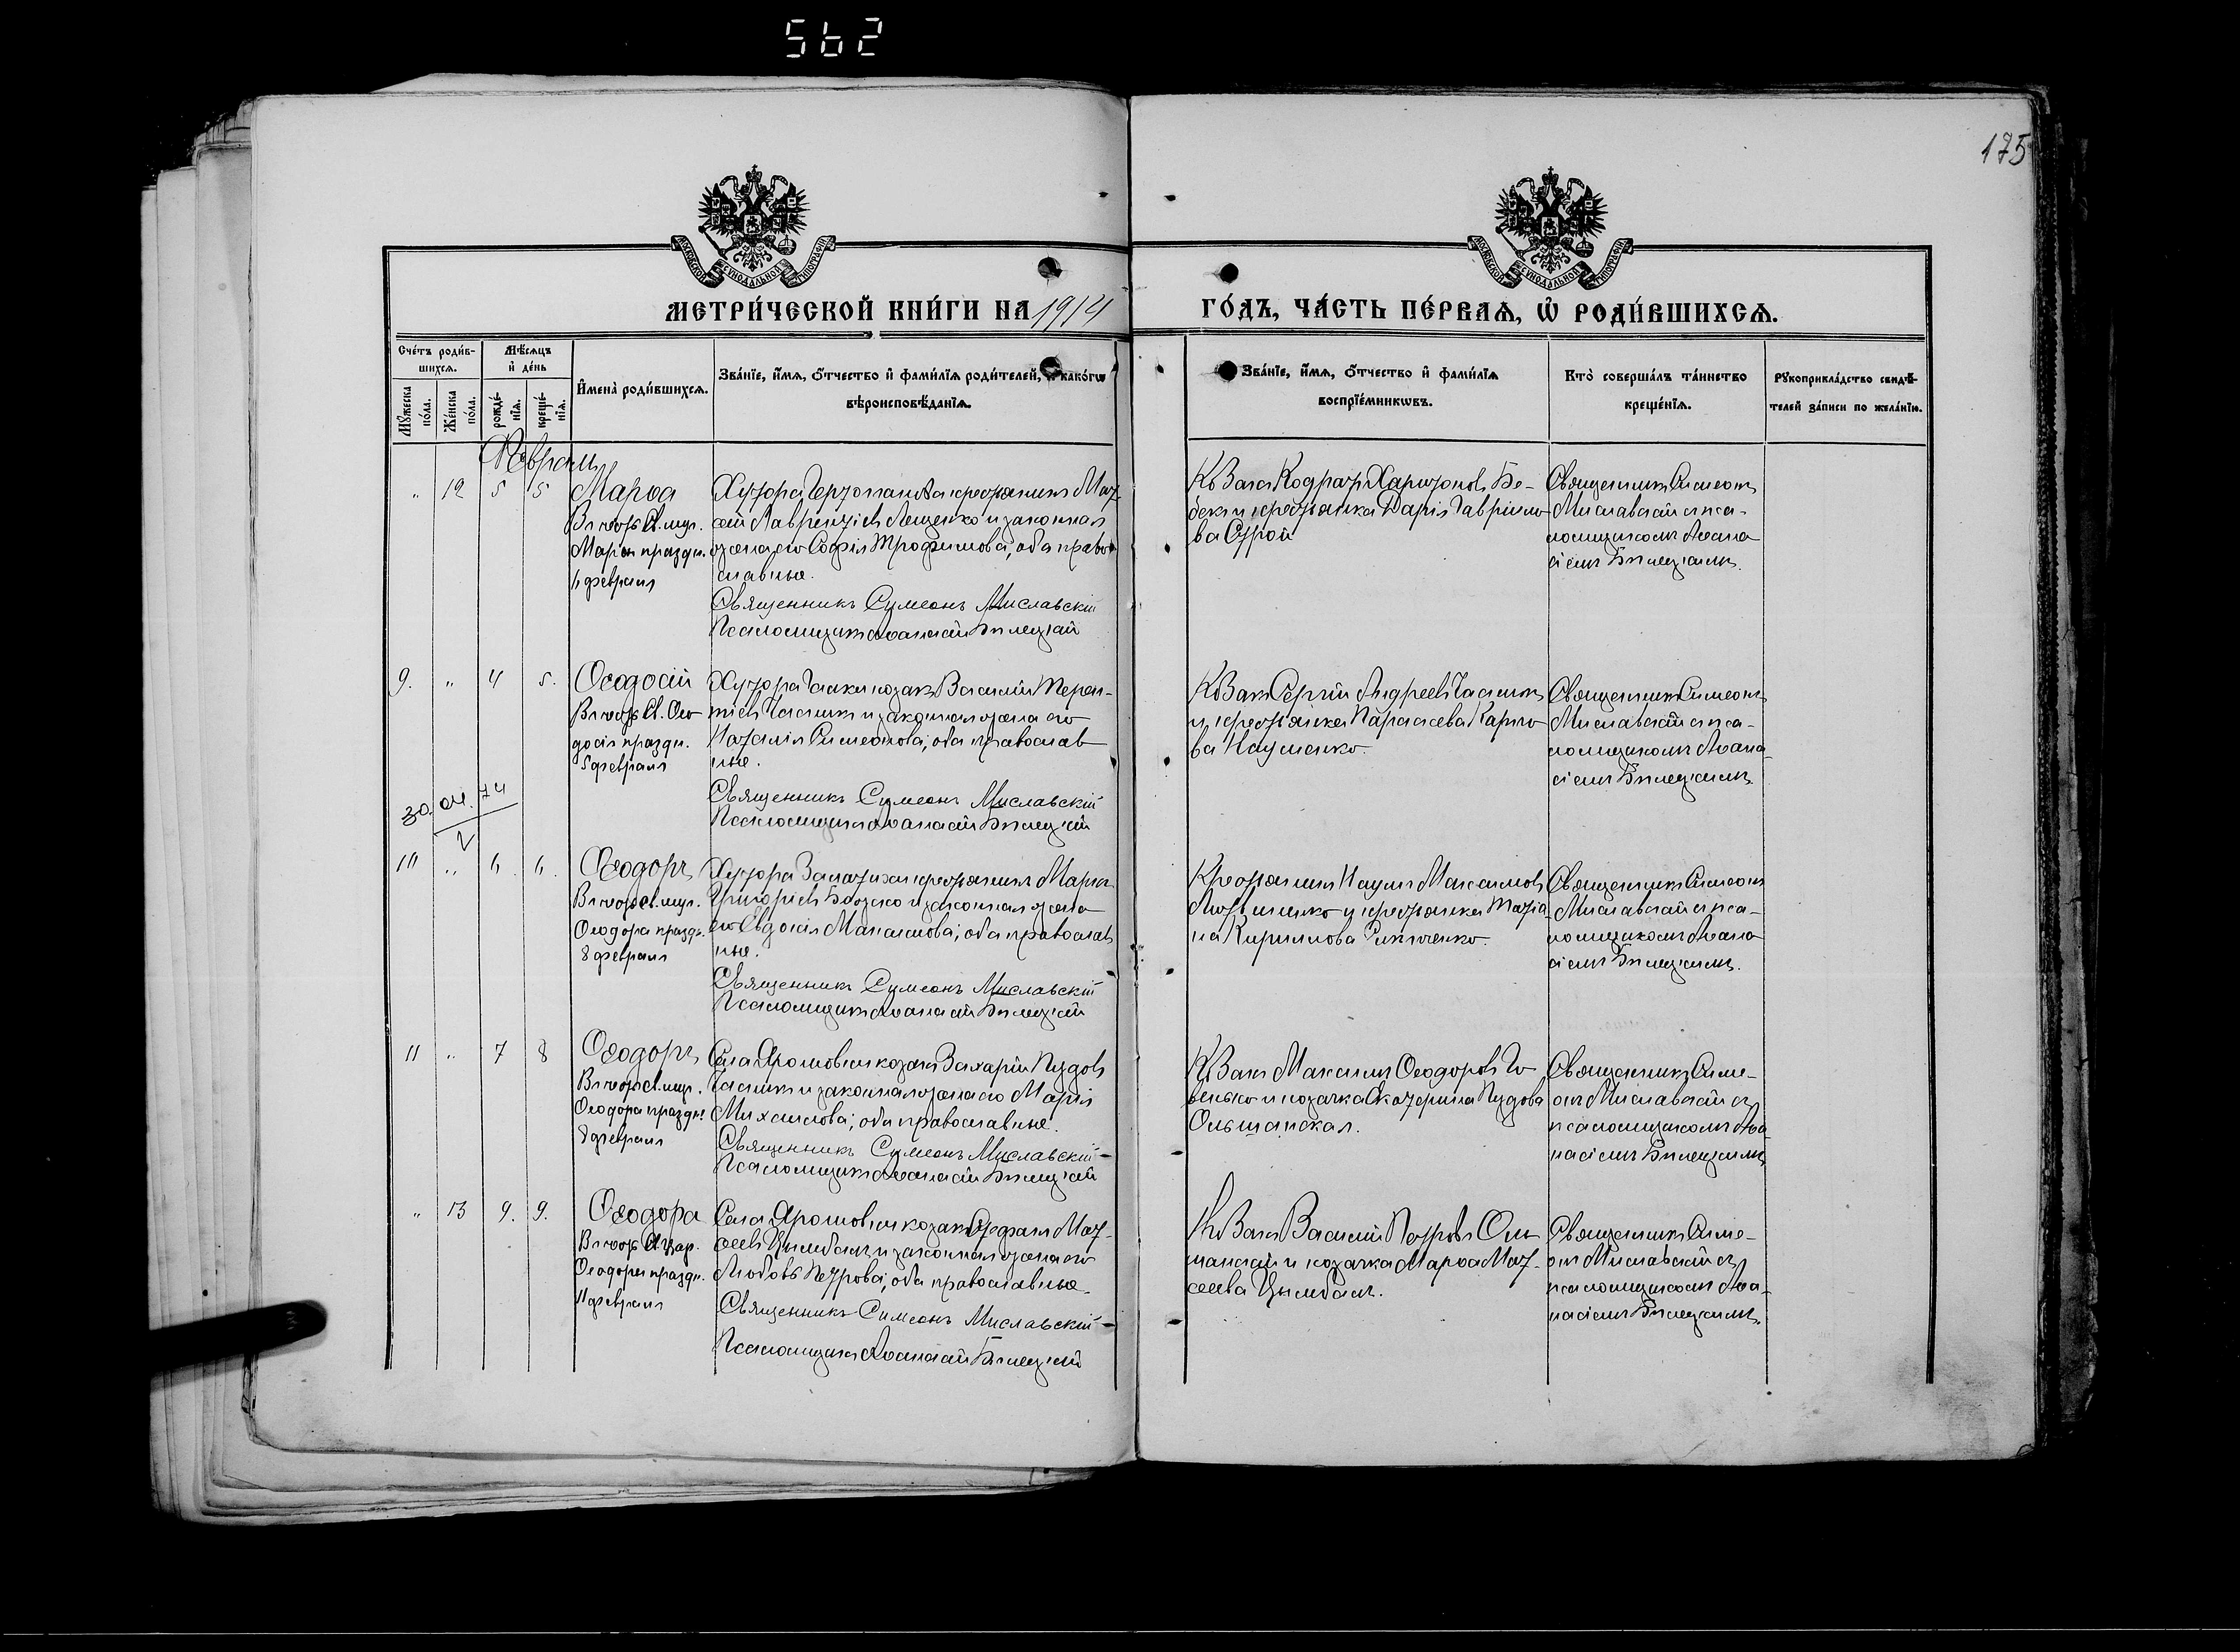 562
175
МОСКОВСКОЙ СУНОДАЛЬНОЙ ТИПОГРАФІИ
МОСКОВСКОЙ СУНОДАЛЬНОЙ ТИПОГРАФІИ
МЕТРИ́ЧЕСКОЙ КНИ́ГИ НА 1914
ГО́ДЪ, ЧА́СТЬ ПЕ́РВАѦ, Ѡ҆ РОДИ́ВШИХСѦ.
Сче́тъ роди́в-
шихсѧ.
Мѣ́сѧцъ
и҆ де́нь
Мꙋ́жеска
по́ла.
Же́нска
по́ла.
рожде́-
нїѧ.
креще́-
нїѧ.
И҆мена̀ роди́вшихсѧ.
Зва́нїе, и҆́мѧ, ѻ҆́тчество и҆ фами́лїѧ роди́телей, и҆ како́гѡ
вѣроисповѣ́данїѧ.
Зва́нїе, и҆́мѧ, ѻ҆́тчество и҆ фами́лїѧ
воспрїе́мникѡвъ.
Кто̀ соверша́лъ та́инство
креще́нїѧ.
Рꙋкоприкла́дство свидѣ́-
телей за́писи по жела́нїю.
Февраль
" 12 5 5 Марѳа
В честь св. муч.
Марѳы праздн.
6 февраля
Хутора крестьянинъ Мат-
ѳей Лаврентіевъ Лещенко и законная
жена его Софія Трофимова, оба право-
славные.
Священникъ Сумеонъ Миславскій
Псаломщикъ Аѳанасій Билецкій
Козакъ Кодратъ Харитоновъ Бе-
и крестьянка Дарія Гаврило-
ва
Священникъ Симеонъ
Миславскій с пса-
ломщикомъ Аѳана-
сіемъ Билецкимъ.
9. " 4 5. Ѳеодосій
В честь св. Ѳео-
досія праздн.
5 февраля
Хутора козакъ Василій Терен-
тіевъ и законная жена его
Наталія Симеонова, оба православ-
ные.
Священникъ Сумеонъ Миславскій
Псаломщикъ Аѳанасій Билецкій
Козакъ Сергій Андреевъ
и крестьянка Параскева Карпо-
ва Науменко.
Священникъ Симеонъ
Миславскій с пса-
ломщикомъ Аѳана-
сіемъ Билецкимъ.
30.04.74
2
10 " 6. 6. Ѳеодоръ
В честь св. муч.
Ѳеодора праздн.
8 февраля
Хутора крестьянинъ
Григоріевъ и законная жена
его Евдокія Максимова, оба православ-
ные.
Священникъ Сумеонъ Миславскій
Псаломщикъ Аѳанасій Билецкій
Крестьянинъ Наумъ Максимовъ
Литвиненко и крестьянка Татія-
на Кириллова
Священникъ Симеонъ
Миславскій с пса-
ломщикомъ Аѳана-
сіемъ Билецкимъ.
11 " 7 8 Ѳеодоръ
В честь св. муч.
Ѳеодора праздн.
8 февраля
Села Ярошовки козакъ Захарій Пудовъ
и законная жена его Марія
Михаилова, оба православные.
Священникъ Сумеонъ Миславскій
Псаломщикъ Аѳанасій Билецкій
Козакъ Максимъ Ѳеодоровъ
и козачка Екатерина Пудова
Ольшанская.
Священникъ Симе-
онъ Миславскій съ
псаломщикомъ Аѳа-
насіемъ Билецкимъ
" 13 9. 9. Ѳеодора
В честь св. цар.
Ѳеодоры праздн.
11 февраля
Села Ярошовки козакъ Стефанъ Мат-
ѳеевъ Цымбалъ и законная жена его
Любовь Петрова, оба православные.
Священникъ Симеонъ Миславскій
Псаломщикъ Аѳанасій Билецкій
Козакъ Василій Петровъ Оль-
шанскій и козачка Марѳа Мат-
ѳеева Цымбалъ.
Священникъ Симе-
онъ Миславскій съ
псаломщикомъ Аѳа-
насіемъ Билецкимъ.